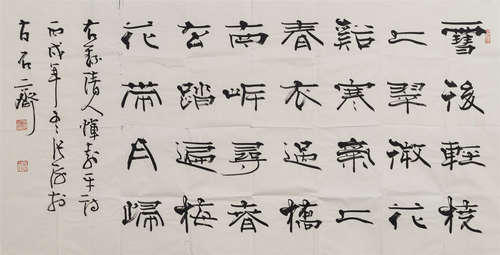 雪後輕橈
入翠微花
谿寒氣上
春衣過橋
南岸尋春
去踏遍梅
花帶月歸
右錄清人惲壽平詩
丙戌年冬
古石齋